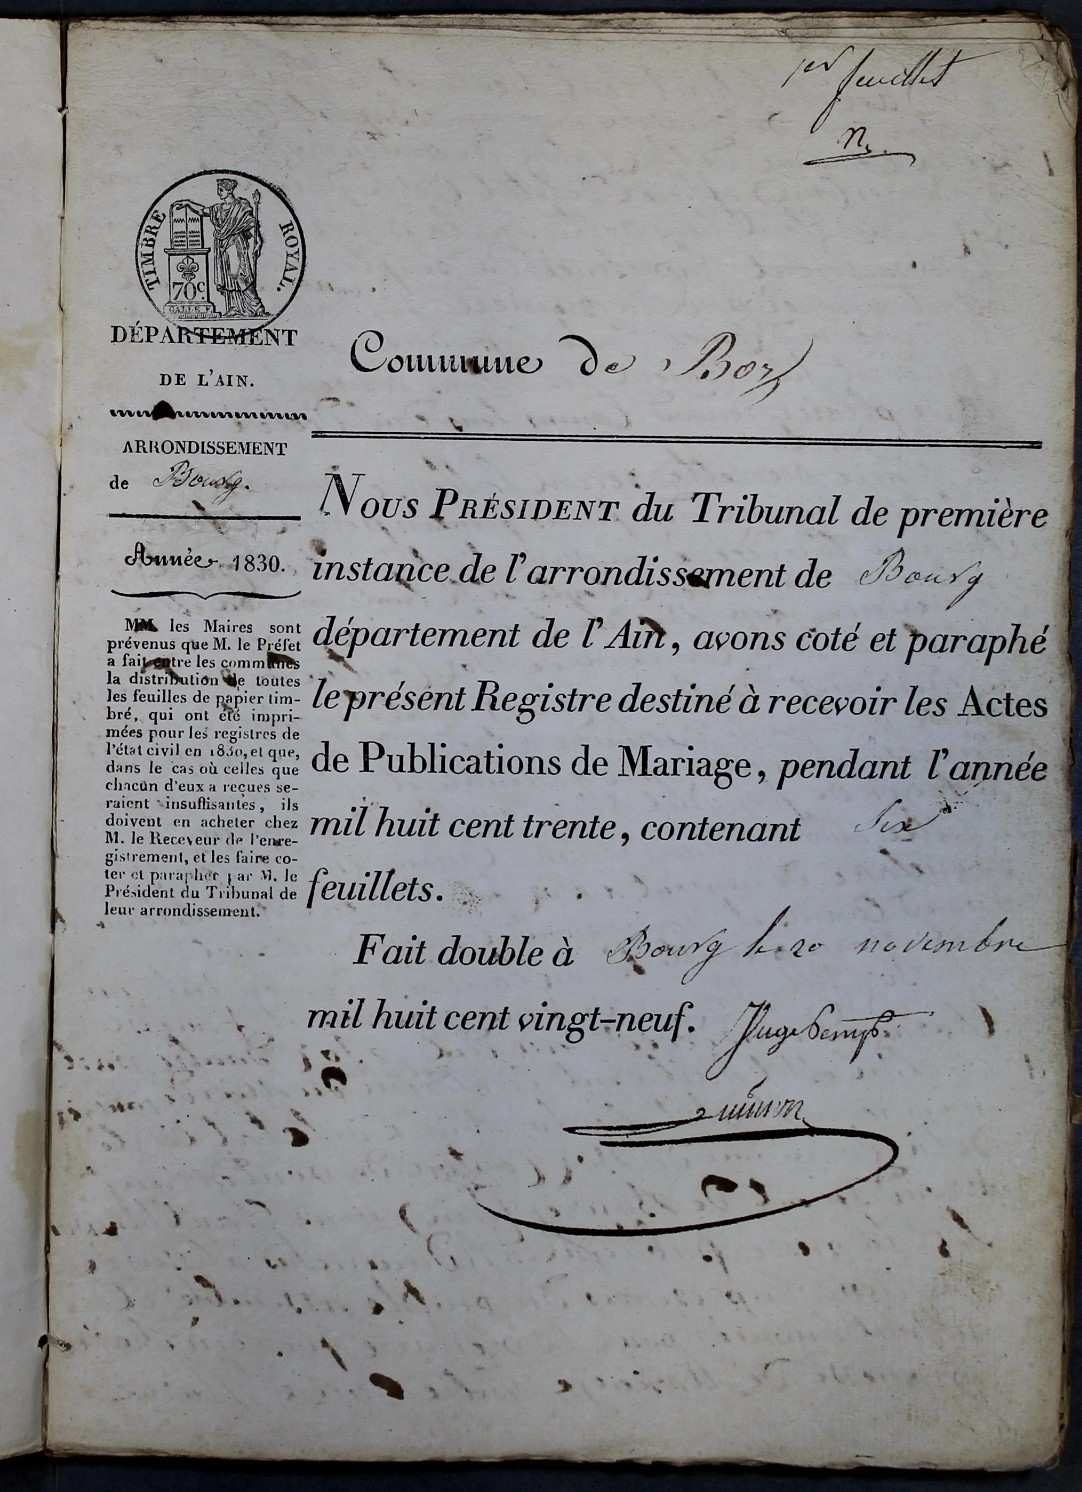 1er feuillet
TIMBRE ROYAL.
70c.
DÉPARTEMENT
DE L'AIN.
ARRONDISSEMENT
de Bourg.
Année 1830.
MM. les Maires sont
prévenus que M. le Préfet
a fait entre les communes
la distribution de toutes
les feuilles de papier tim-
bré, qui ont été impri-
mées pour les registres de
l'état civil en 1830, et que,
dans le cas où celles que
chacun d'eux a reçues se-
raient insuffisantes, ils
doivent en acheter chez
M. le Receveur de l'enre-
gistrement, et les faire co-
ter et parapher par M. le
Président du Tribunal de
leur arrondissement.
Commune de Boz
NOUS PRÉSIDENT du Tribunal de première
instance de l'arrondissement de Bourg
département de l'Ain, avons coté et paraphé
le présent Registre destiné à recevoir les Actes
de Publications de Mariage, pendant l'année
mil huit cent trente, contenant six
feuillets.
Fait double à Bourg le 20 novembre
mil huit cent vingt-neuf.